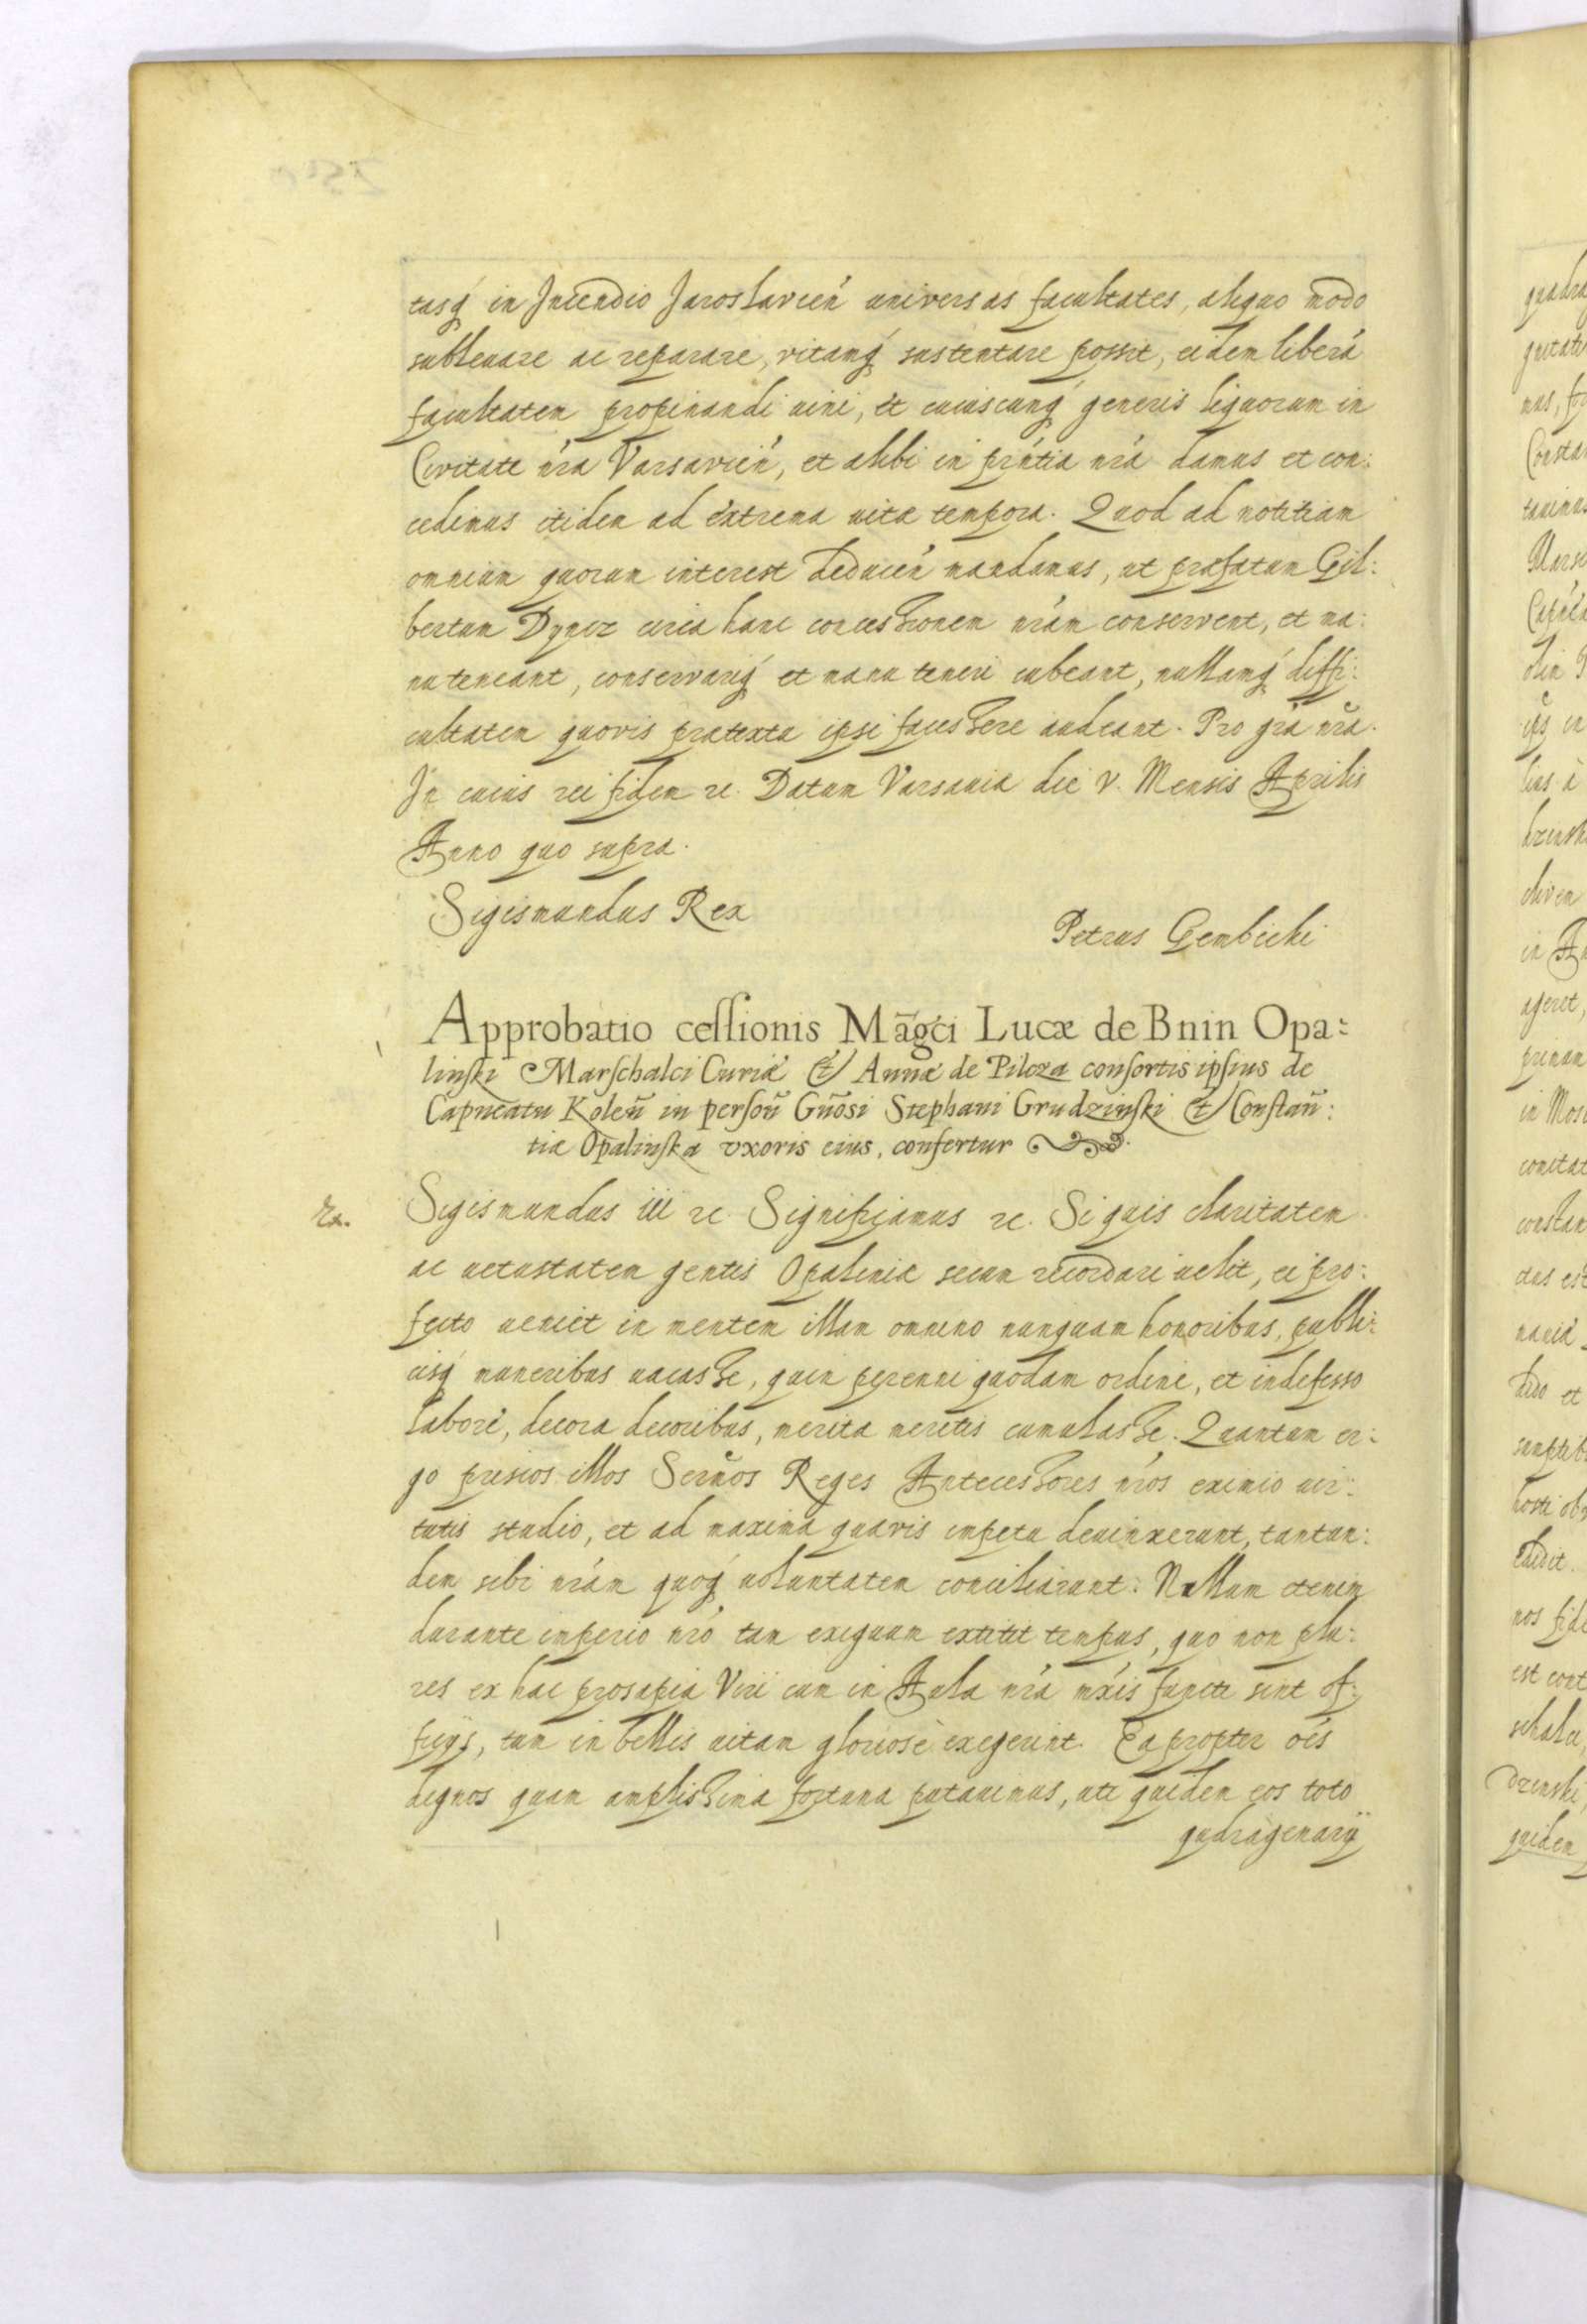 tasq́ in Incendio Jaroslavień universas facultates, aliquo modo
subleuare ac reparare, vitamq́ sustentare possit, eidem liberá
facultatem propinandi uini, et cuiuscunq́ generis liquorum in
Civitate ńra Varsavień, et alibi in pŕntia ńra damus et con:
cedimus itidem ad extrema uitæ tempora. Quod ad notitiam
omnium quorum interest deducień mandamus, ut præfatum Gil:
bertum Dynez circa hanc concessionem ńram conservent, et ma:
nu teneant, conservariq́ et manu teneri iubeant, nullamq́ diffi:
cultatem quovis prætextu ipsi facessere audeant. Pro gŕa ñra.
In cuius rei fidem ꝛc. Datum Varsauiæ die V. Mensis Aprilis
Anno quo supra.
Sigismundus Rex
Petrus Gembicki
Approbatio cessionis Mãgci Lucæ de Bnin Opa:
linski Marschalci Curiæ et Annæ de Pilcza consortis ipsius de
Capneatu Koleñ in persoñ Gñosi Stephani Grudzinski et Constañ:
tiæ Opalinska uxoris eius, confertur
Ex.
Sigismundus iii ꝛc. Significamus ꝛc. Si quis claritatem
ac uetustatem gentis Opaliniæ secum recordari uelit, ei pro:
fecto ueniet in mentem illam omnino nunquam honoribus, publi:
cisq́ muneribus uacasse, quin perenni quodam ordine, et indefesso
labore, decora decoribus, merita meritis cumulasse. Quantum er:
go priscos illos Serños Reges Antecessores ńros eximio uir:
tutis studio, et ad maxima quævis impetu deuinxerunt, tantun:
dem sibi ńram quoq́ uoluntatem conciliarunt: Nullum etenim
durante imperio ńro tam exiguum extitit tempus, quo non plu:
res ex hac prosapia Viri cum in Aula ńra máxis functi sint of:
ficijs, tum in bellis uitam gloriosè exegerint. Ea propter oés
dignos quam amplissima fortuna putauimus, uti quidem eos toto
qudragenarij